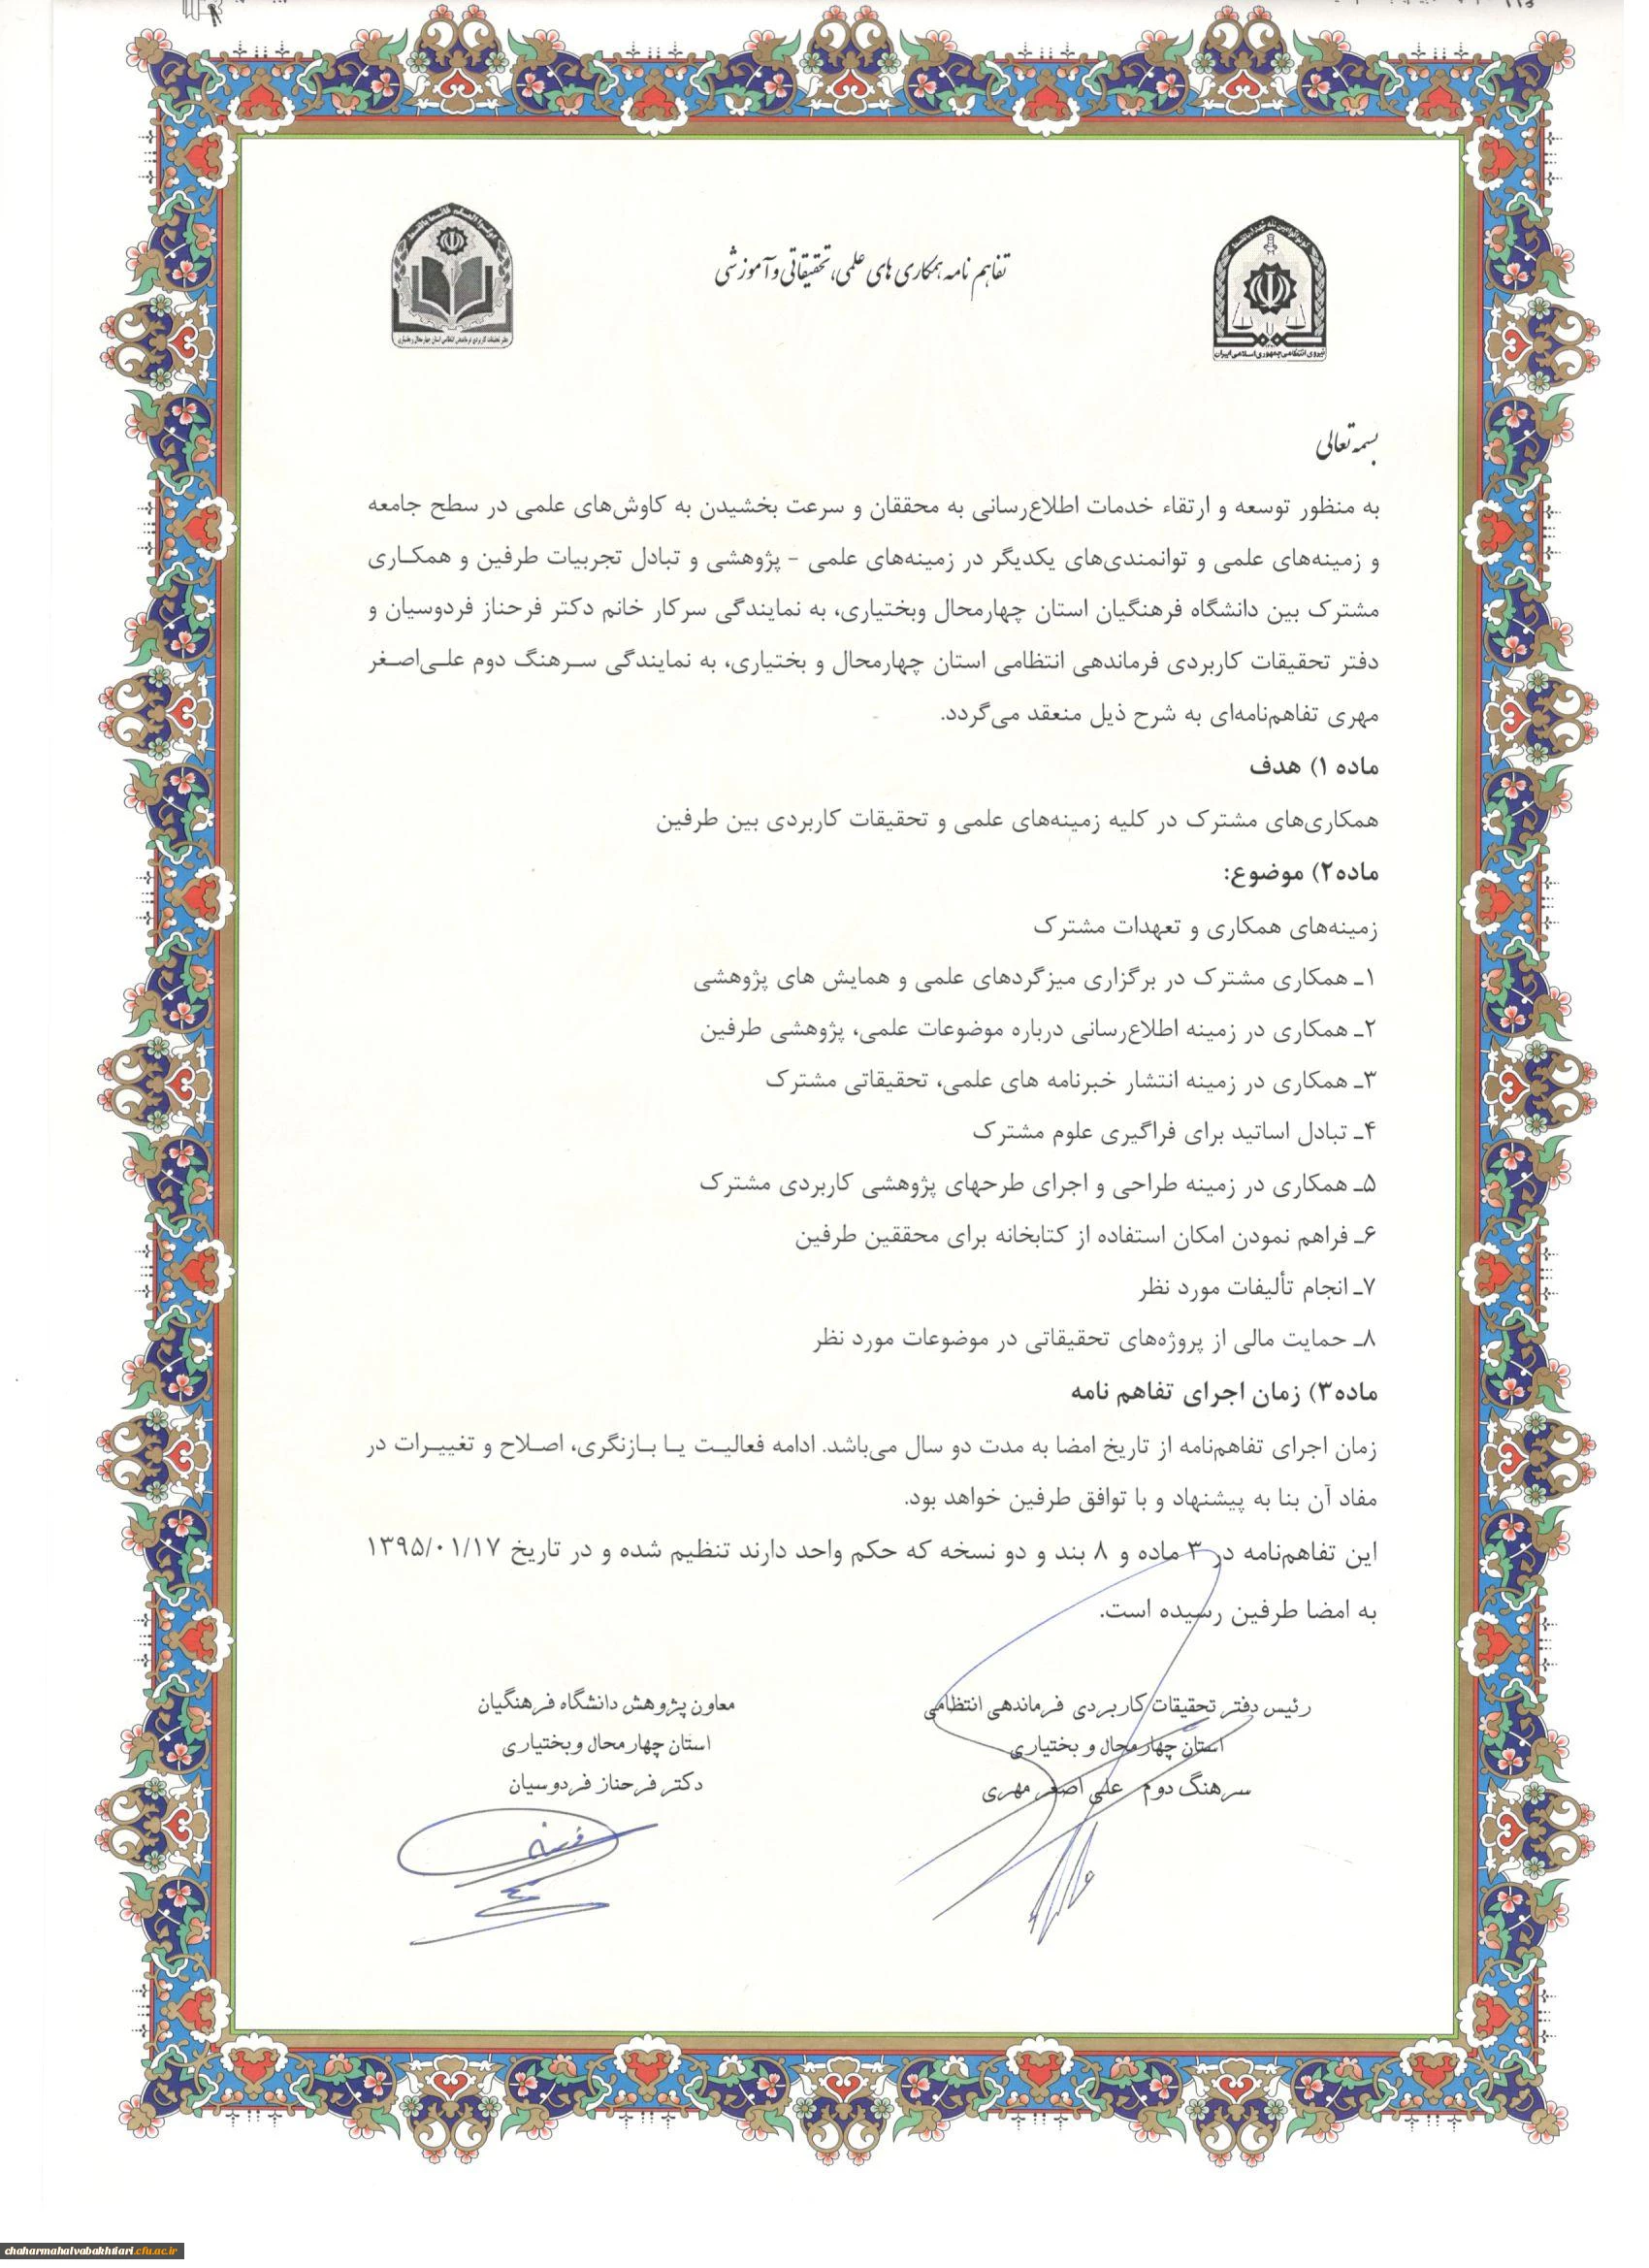 تفاهم نامه همکاری های علمی، تحقیقاتی و آموزشی
نیروی انتظامی جمهوری اسلامی ایران
دفتر تحقیقات کاربردی فرماندهی انتظامی استان چهارمحال و بختیاری
بسمه تعالی
به منظور توسعه و ارتقاء خدمات اطلاع‌رسانی به محققان و سرعت بخشیدن به کاوش‌های علمی در سطح جامعه
و زمینه‌های علمی و توانمندی‌های یکدیگر در زمینه‌های علمی - پژوهشی و تبادل تجربیات طرفین و همکاری
مشترک بین دانشگاه فرهنگیان استان چهارمحال وبختیاری، به نمایندگی سرکار خانم دکتر فرحناز فردوسیان و
دفتر تحقیقات کاربردی فرماندهی انتظامی استان چهارمحال و بختیاری، به نمایندگی سرهنگ دوم علی‌اصغر
مهری تفاهم‌نامه‌ای به شرح ذیل منعقد می‌گردد.
ماده ۱) هدف
همکاری‌های مشترک در کلیه زمینه‌های علمی و تحقیقات کاربردی بین طرفین
ماده۲) موضوع:
زمینه‌های همکاری و تعهدات مشترک
۱ـ همکاری مشترک در برگزاری میزگردهای علمی و همایش های پژوهشی
۲ـ همکاری در زمینه اطلاع‌رسانی درباره موضوعات علمی، پژوهشی طرفین
۳ـ همکاری در زمینه انتشار خبرنامه های علمی، تحقیقاتی مشترک
۴ـ تبادل اساتید برای فراگیری علوم مشترک
۵ـ همکاری در زمینه طراحی و اجرای طرحهای پژوهشی کاربردی مشترک
۶ـ فراهم نمودن امکان استفاده از کتابخانه برای محققین طرفین
۷ـ انجام تألیفات مورد نظر
۸ـ حمایت مالی از پروژه‌های تحقیقاتی در موضوعات مورد نظر
ماده۳) زمان اجرای تفاهم نامه
زمان اجرای تفاهم‌نامه از تاریخ امضا به مدت دو سال می‌باشد. ادامه فعالیت یا بازنگری، اصلاح و تغییرات در
مفاد آن بنا به پیشنهاد و با توافق طرفین خواهد بود.
این تفاهم‌نامه در ۳ ماده و ۸ بند و دو نسخه که حکم واحد دارند تنظیم شده و در تاریخ ۱۳۹۵/۰۱/۱۷
به امضا طرفین رسیده است.
رئیس دفتر تحقیقات کاربردی فرماندهی انتظامی
استان چهارمحال و بختیاری
سرهنگ دوم علی اصغر مهری
معاون پژوهش دانشگاه فرهنگیان
استان چهارمحال وبختیاری
دکتر فرحناز فردوسیان
chaharmahalvabakhtiari.cfu.ac.ir